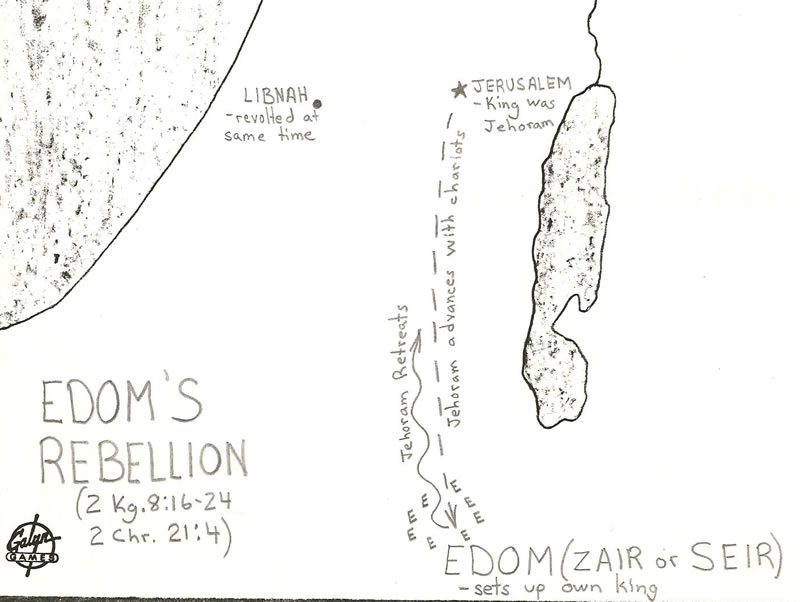 LIBNAH
-revolted at
same time
JERUSALEM
-King was
Jehoram
Jehoram advances with chariots
Jehoram Retreats
EDOM'S
REBELLION
(2 Kg. 8:16-24
2 Chr. 21:4)
Galyn
GAMES
E
E
E
E
E
E
E
E
E
E
EDOM (ZAIR or SEIR)
-sets up own king